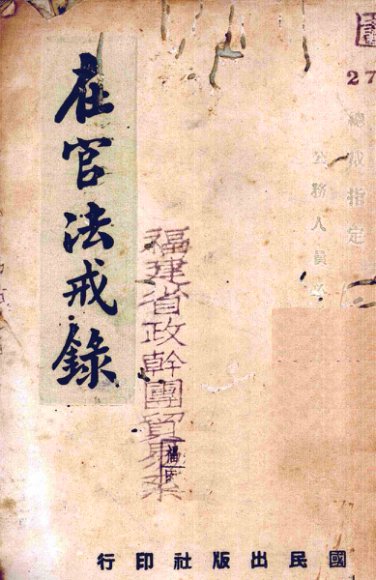 27
總裁指定
公務人員必
福建省政幹團
在官法戒錄
國民出版社印行